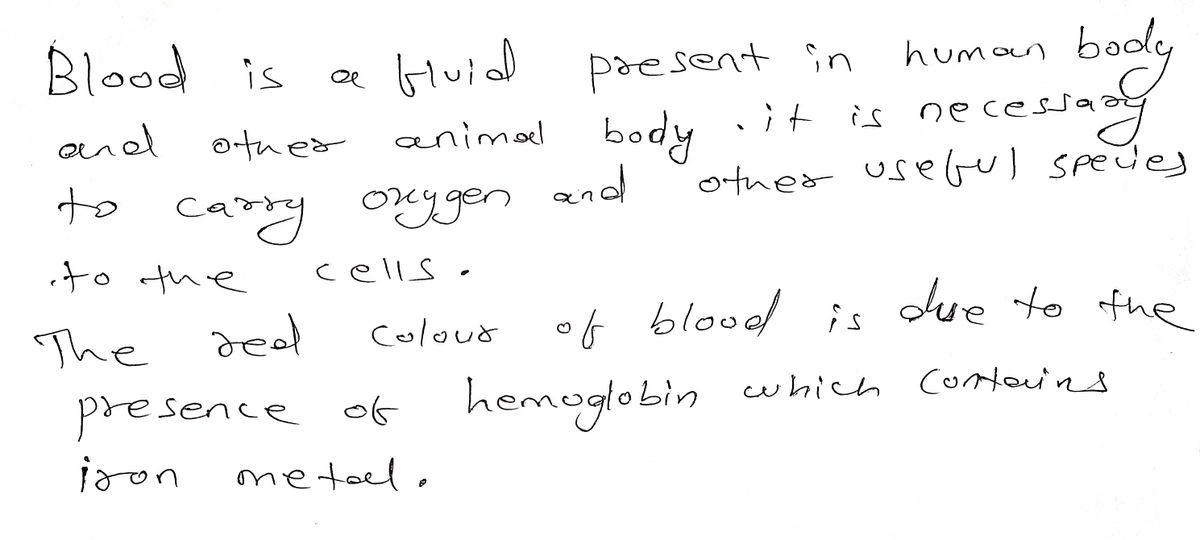 Blood is a fluid present in human body
and other animal body . it is necessary
to carry oxygen and other useful species
.to the cells .
The red colour of blood is due to the
presence of hemoglobin which contains
iron metal .